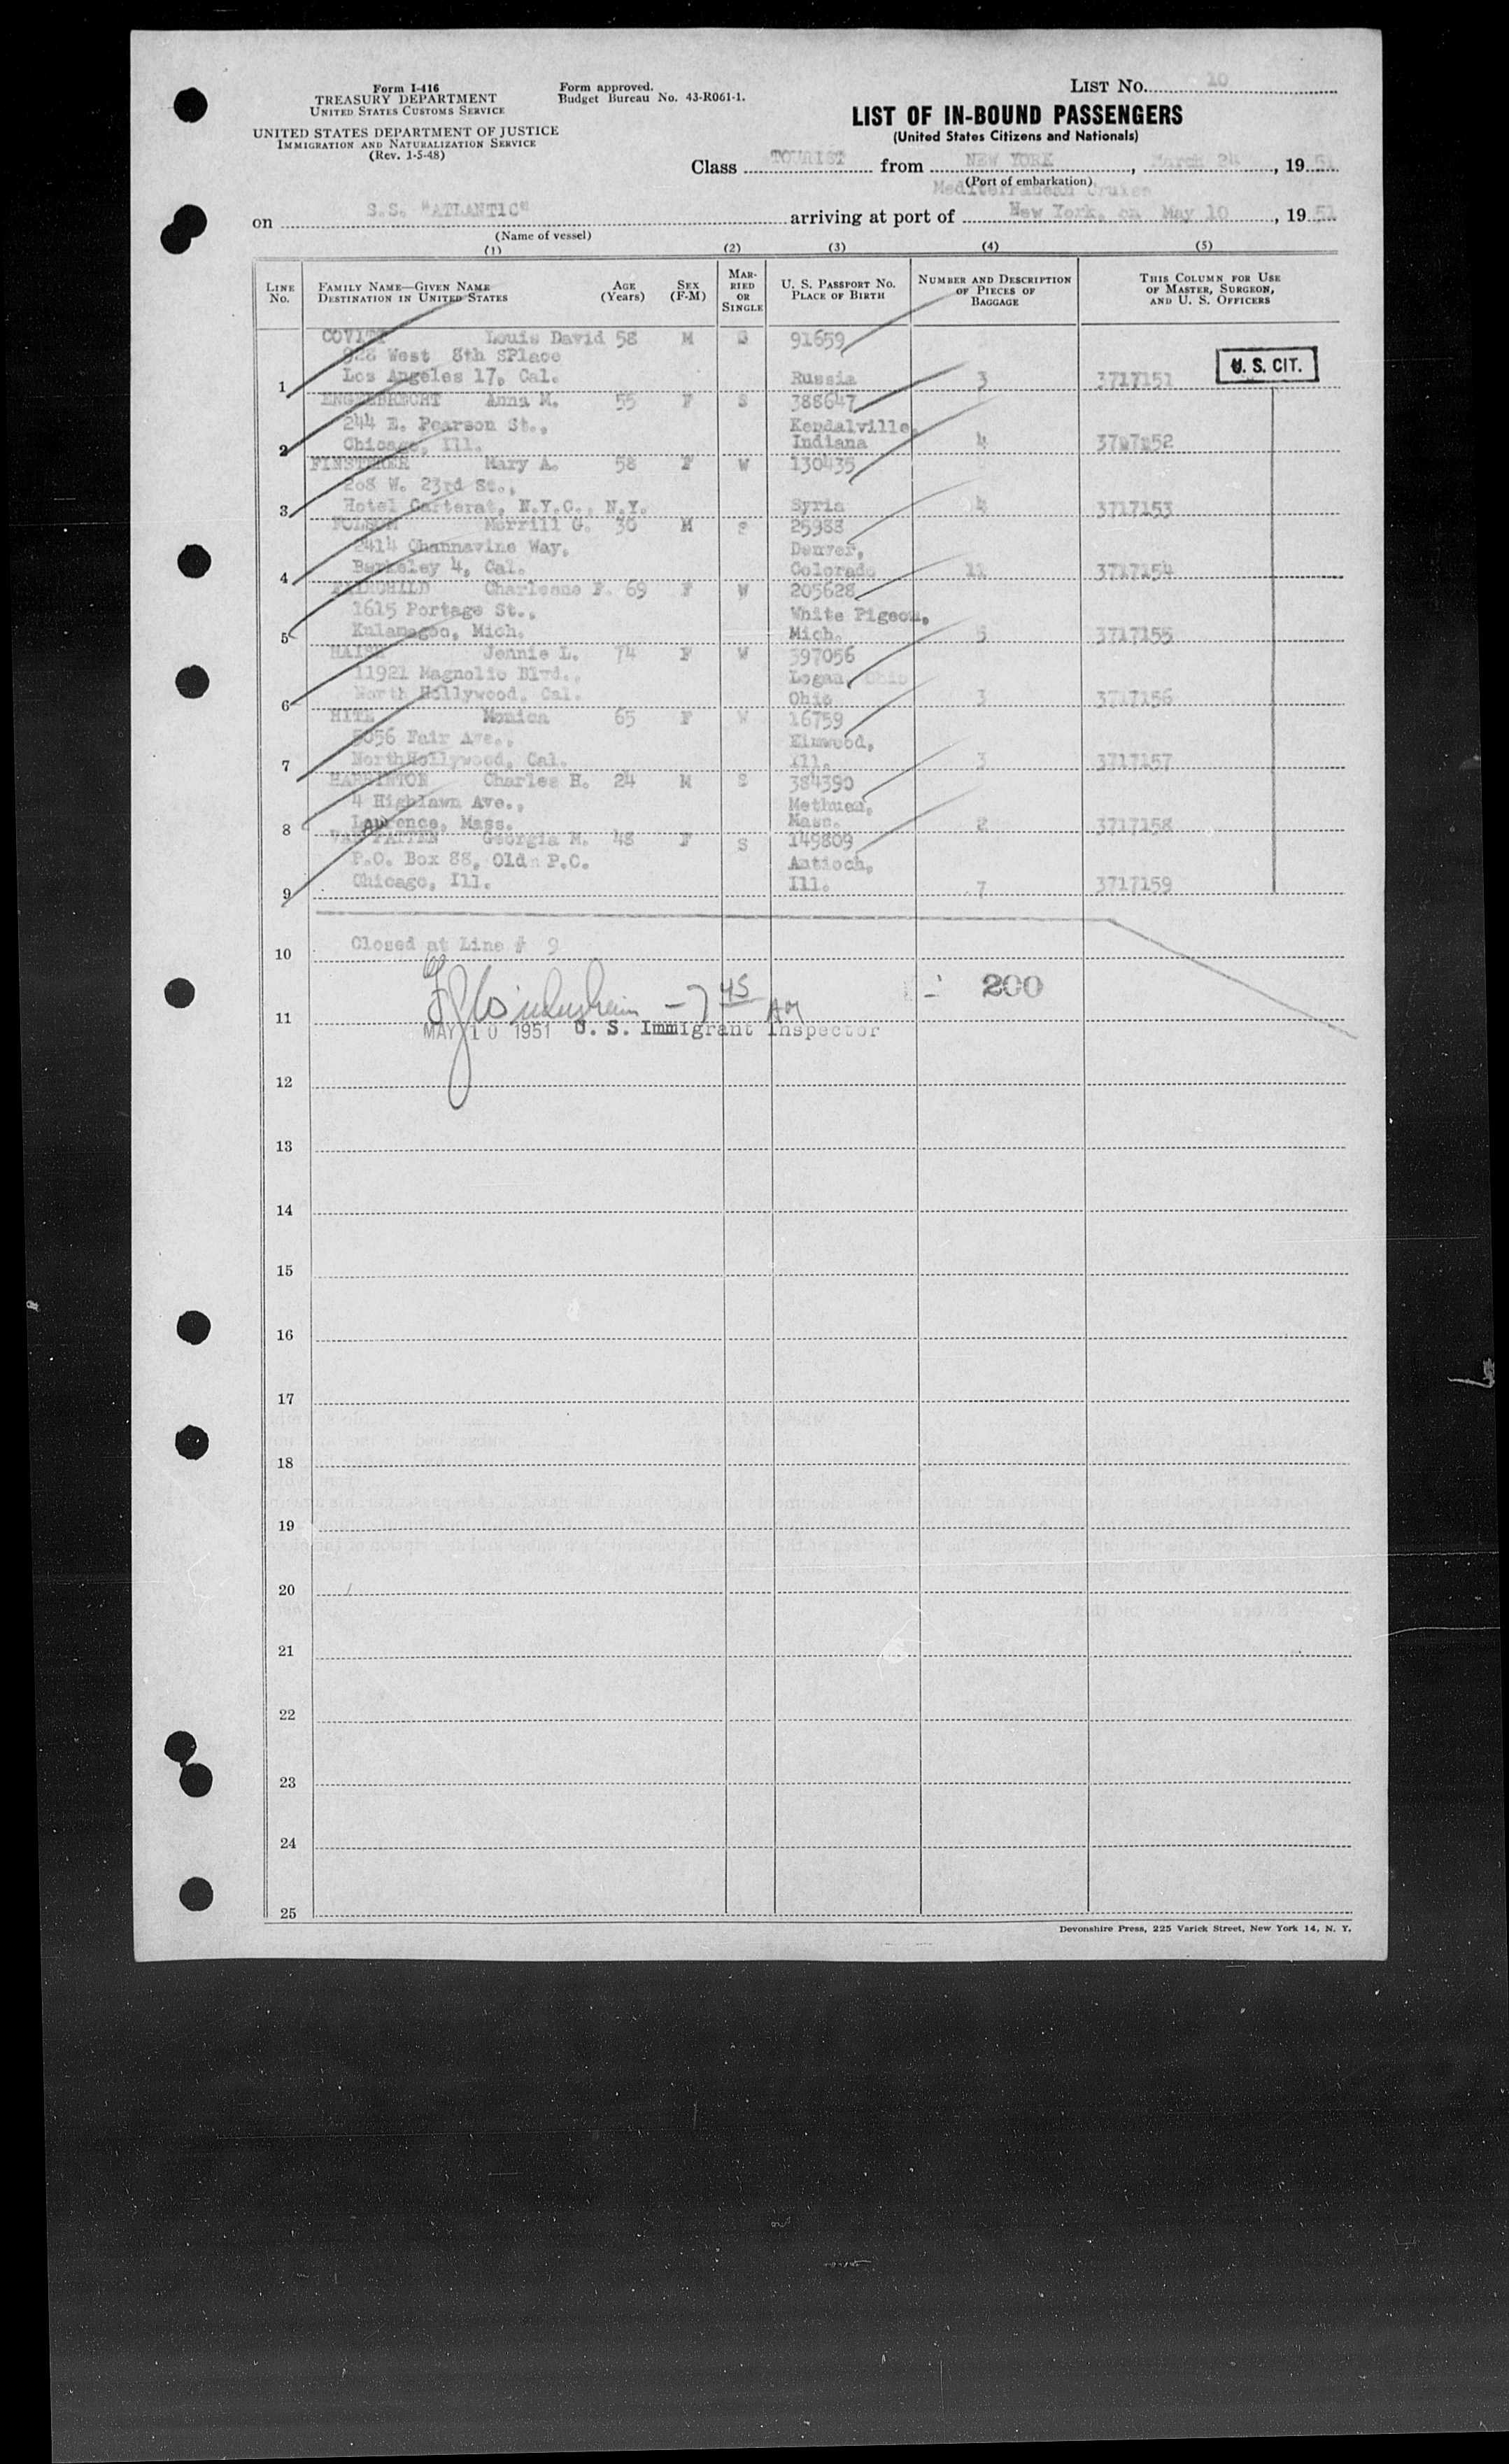 Form I-416
TREASURY DEPARTMENT
UNITED STATES CUSTOMS SERVICE
UNITED STATES DEPARTMENT OF JUSTICE
IMMIGRATION AND NATURALIZATION SERVICE
(Rev. 1-5-48)
Form approved.
Budget Bureau No. 43-R061-1.
LIST NO. 10
LIST OF IN-BOUND PASSENGERS
(United States Citizens and Nationals)
Class TOURIST from NEW YORK, March 24, 1951
(Port of embarkation)
Mediterranean
on S.S. "ATLANTIC" arriving at port of New York, on May 10, 1951
(Name of vessel)
(1) (2) (3) (4) (5)
LINE NO. FAMILY NAME—GIVEN NAME DESTINATION IN UNITED STATES AGE (Years) SEX (F-M) MARRIED OR SINGLE U. S. PASSPORT NO. PLACE OF BIRTH NUMBER AND DESCRIPTION OF PIECES OF BAGGAGE THIS COLUMN FOR USE OF MASTER, SURGEON, AND U. S. OFFICERS
Louis David 58 M 91659
928 West 8th SPlace
U. S. CIT.
1 Los Angeles 17, Cal. Russia 3 3717151
ENGELBRECHT Anna M. 55 F S 388647
244 E. Pearson St., Kendalville,
2 Chicago, Ill. Indiana 4
Mary A. 58 F W 130435
268 W. 23rd St.,
3 Hotel N.Y.C., N.Y. Syria 4 3717153
Merrill G. 36 M S 25988
2414 Channavine Way, Denver,
4 Berkeley 4, Cal. Colorado 11 3717154
FAIRCHILD Charleene F. 69 F W 205628
1615 Portage St., White Pigeon,
5 Kalamagoo, Mich. Mich. 5 3717155
Jennie L. 74 F W 397056
11921 Magnolie Blvd., Logan, Ohio
6 North Hollywood, Cal. Ohio 3 3717156
HITE Monica 65 F W 16759
5056 Fair Ave., Elmwood,
7 NorthHollywood, Cal. Ill. 3 3717157
Charles H. 24 M S 384390
4 Highlawn Ave., Methuen,
8 Lawrence, Mass. Mass. 2 3717158
VAN PATTEN Georgia M. 48 F S 149809
P.O. Box 88, Old P.C. Antioch,
9 Chicago, Ill. Ill. 7 3717159
10 Closed at Line # 9
7 45 AM
200
11 MAY 10 1951 U. S. Immigrant Inspector
12
13
14
15
16
17
18
19
20
21
22
23
24
25
Devonshire Press, 225 Varick Street, New York 14, N. Y.